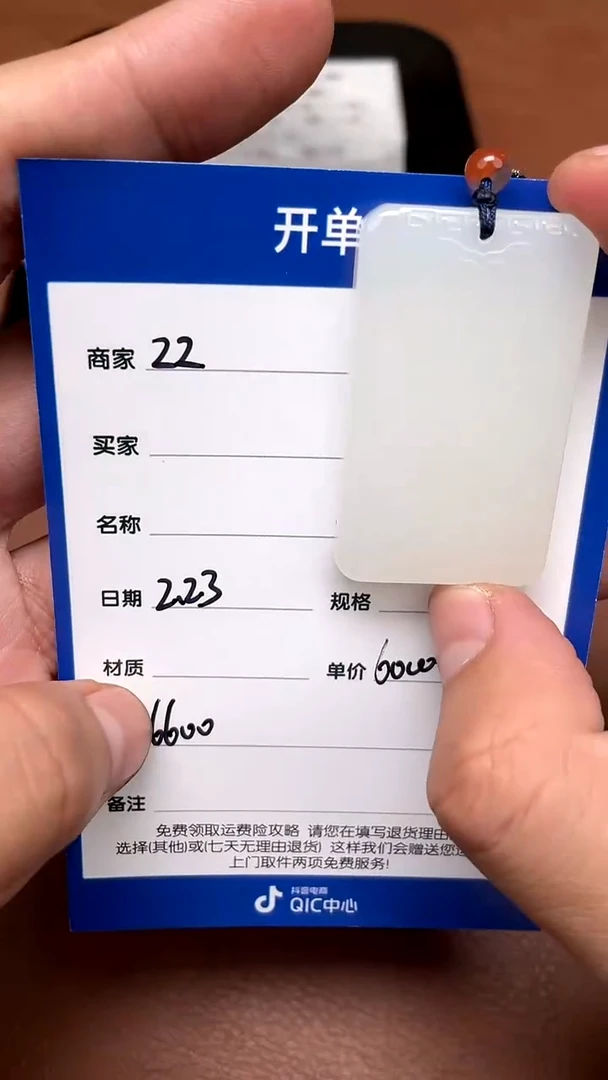 开单
商家 22
买家
名称
日期 2.23 规格
材质 单价 6000
6600
备注
免费领取运费险攻略 请您在填写退货理由
选择(其他)或(七天无理由退货) 这样我们会赠送您
上门取件两项免费服务!
抖音电商
QIC中心